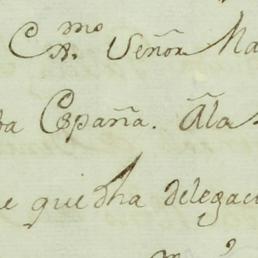 C.mo
A.r Señor Ma
va España. Ãla
e que dha delegac